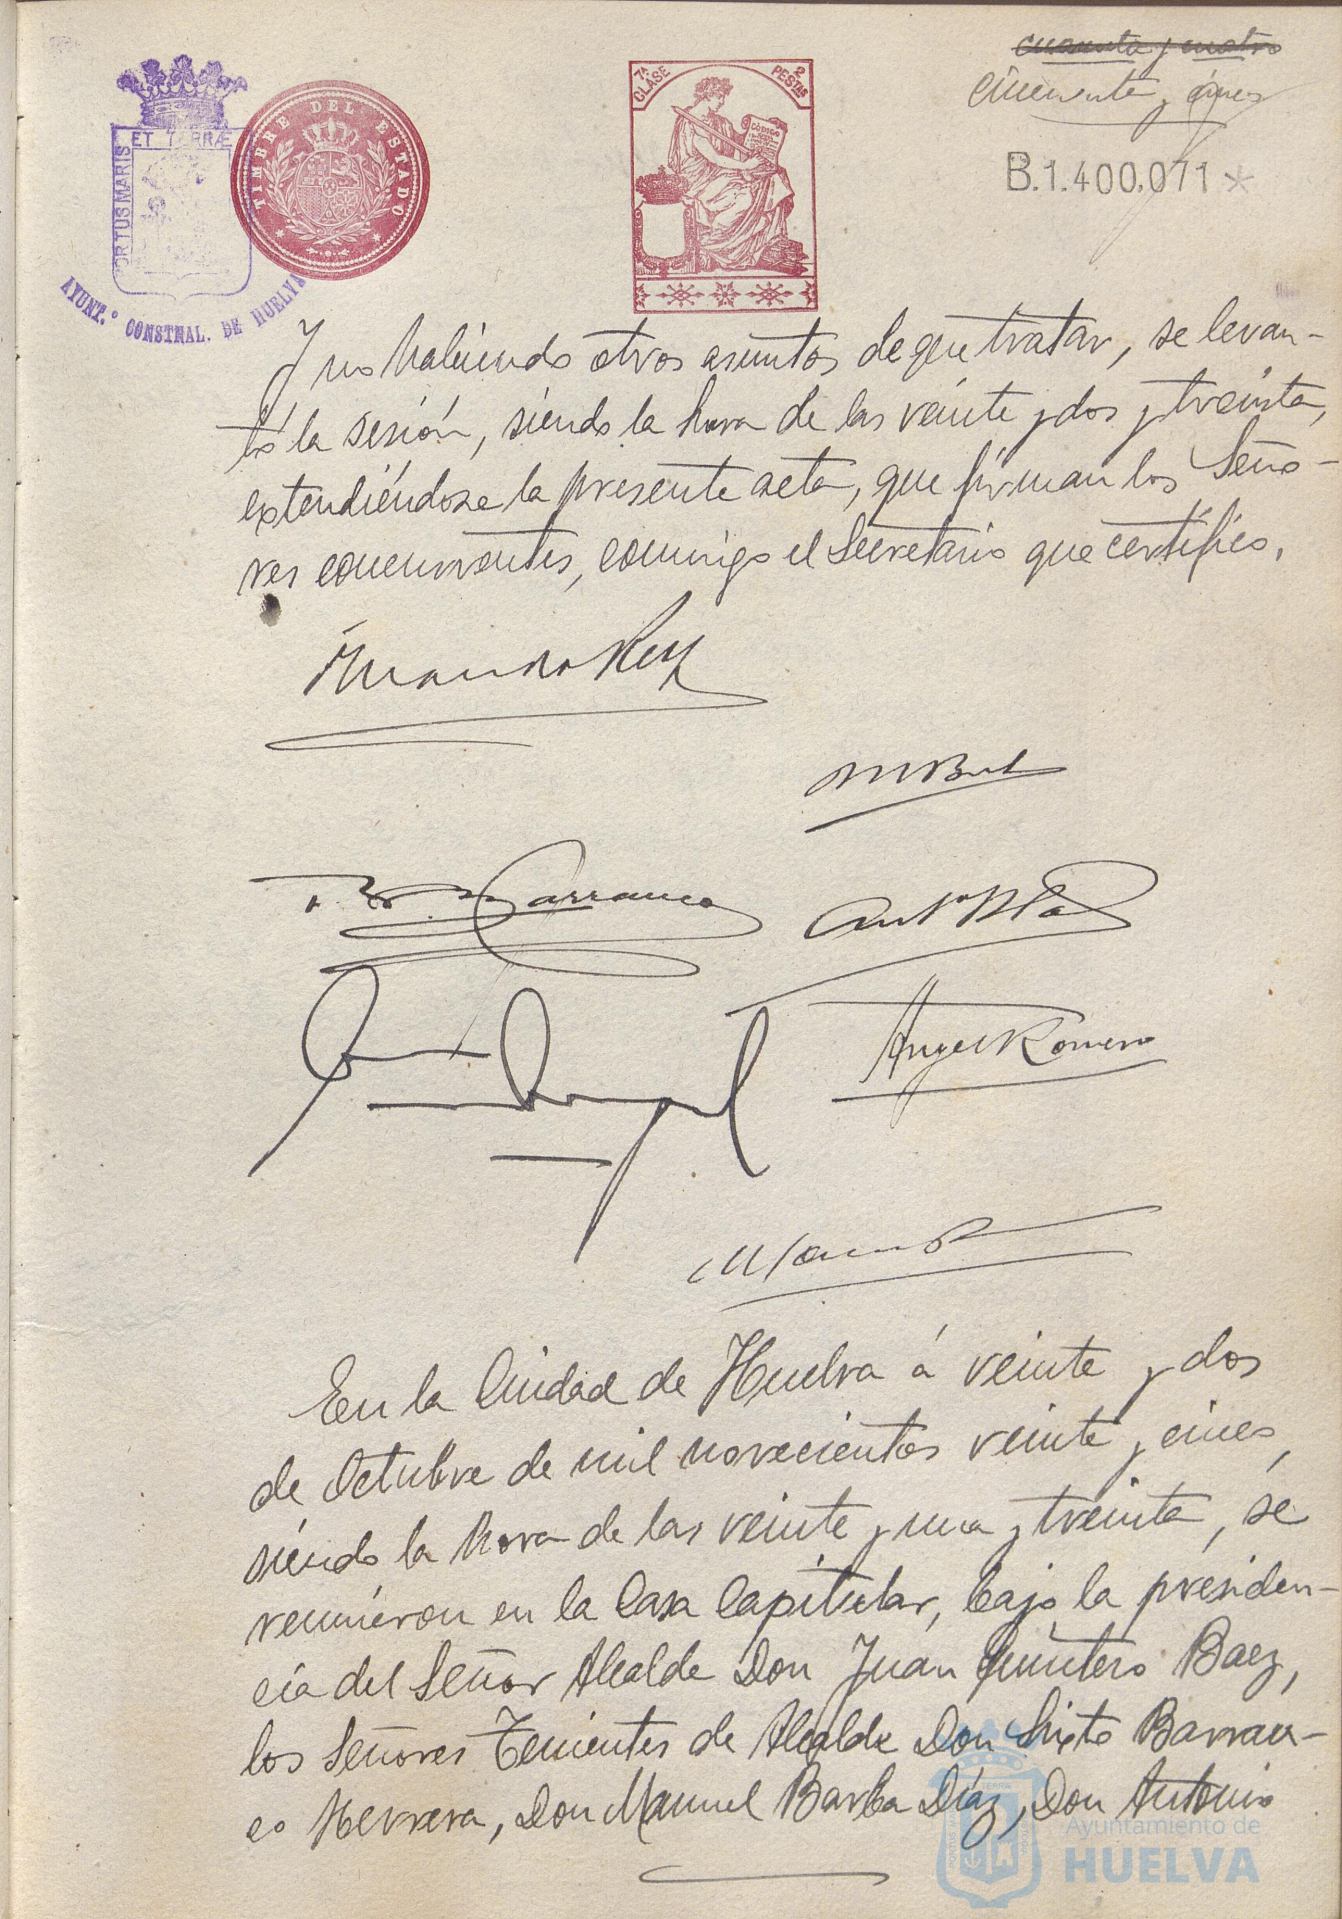 cuarenta y cuatro
cincuenta y cinco
B.1.400.071
7ª CLASE
2 PESTAS
CÓDIGO
TIMBRE DEL ESTADO
PORTUS MARIS ET TERRÆ
AYUNT.º CONSTNAL. DE HUELVA
Y no habiendo otros asuntos de que tratar, se levan-
tó la sesión, siendo la hora de las veinte y dos y treinta,
extendiéndose la presente acta, que firman los Seño-
res concurrentes, conmigo el Secretario que certifico.
Barranco
Angel Romero
En la Ciudad de Huelva á veinte y dos
de Octubre de mil novecientos veinte y cinco,
siendo la hora de las veinte y una y treinta, se
reunieron en la Casa Capitular, bajo la presiden-
cia del Señor Alcalde Don Juan Quintero Baez,
los Señores Tenientes de Alcalde Don Sixto Barran-
co Herrera, Don Manuel Barba Díaz, Don Antonio
Ayuntamiento de
HUELVA